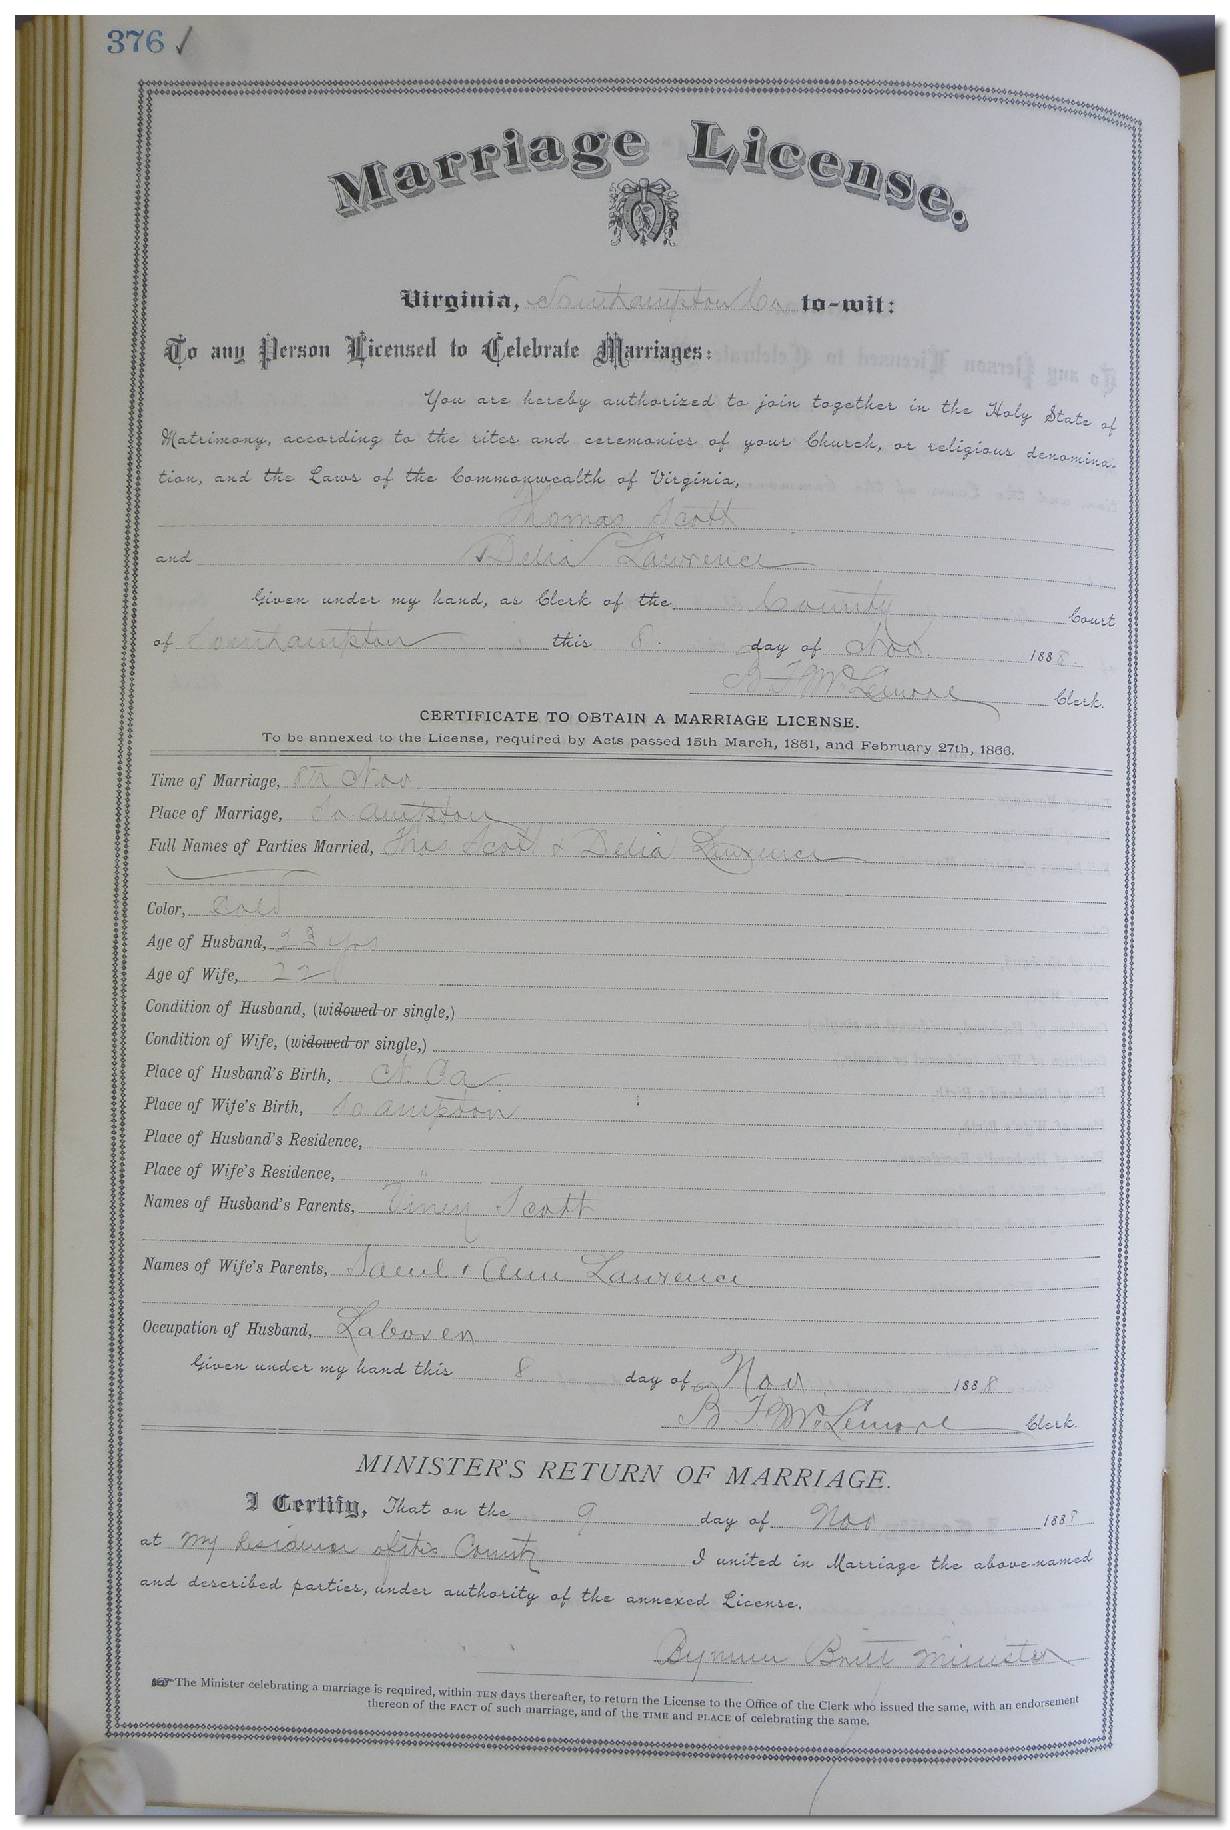 376 ✓
Marriage License.
Virginia, Southampton Co to-wit:
To any Person Licensed to Celebrate Marriages:
You are hereby authorized to join together in the Holy State of
Matrimony, according to the rites and ceremonies of your Church, or religious denomina-
tion, and the Laws of the Commonwealth of Virginia,
Thomas Scott
and Delia Lawrence
Given under my hand, as Clerk of the County Court
of Southampton this 8 day of Nov. 1888.
B F McLemore Clerk.
CERTIFICATE TO OBTAIN A MARRIAGE LICENSE.
To be annexed to the License, required by Acts passed 15th March, 1861, and February 27th, 1866.
Time of Marriage, 8th Nov
Place of Marriage, So ampton
Full Names of Parties Married, Thos Scott & Delia Lawrence
Color, Cold
Age of Husband, 23 yrs
Age of Wife, 22
Condition of Husband, (widowed or single,)
Condition of Wife, (widowed or single,)
Place of Husband's Birth, N. Ca
Place of Wife's Birth, So ampton
Place of Husband's Residence,
Place of Wife's Residence, "
Names of Husband's Parents, Viney Scott
Names of Wife's Parents, Saml & Ann Lawrence
Occupation of Husband, Laborer
Given under my hand this 8 day of Nov 1888
B F McLemore Clerk.
MINISTER'S RETURN OF MARRIAGE.
I Certify, That on the 9 day of Nov 1888
at my Residence of this County I united in Marriage the above-named
and described parties, under authority of the annexed License.
Bynum Britt Minister
The Minister celebrating a marriage is required, within TEN days thereafter, to return the License to the Office of the Clerk who issued the same, with an endorsement
thereon of the FACT of such marriage, and of the TIME and PLACE of celebrating the same.